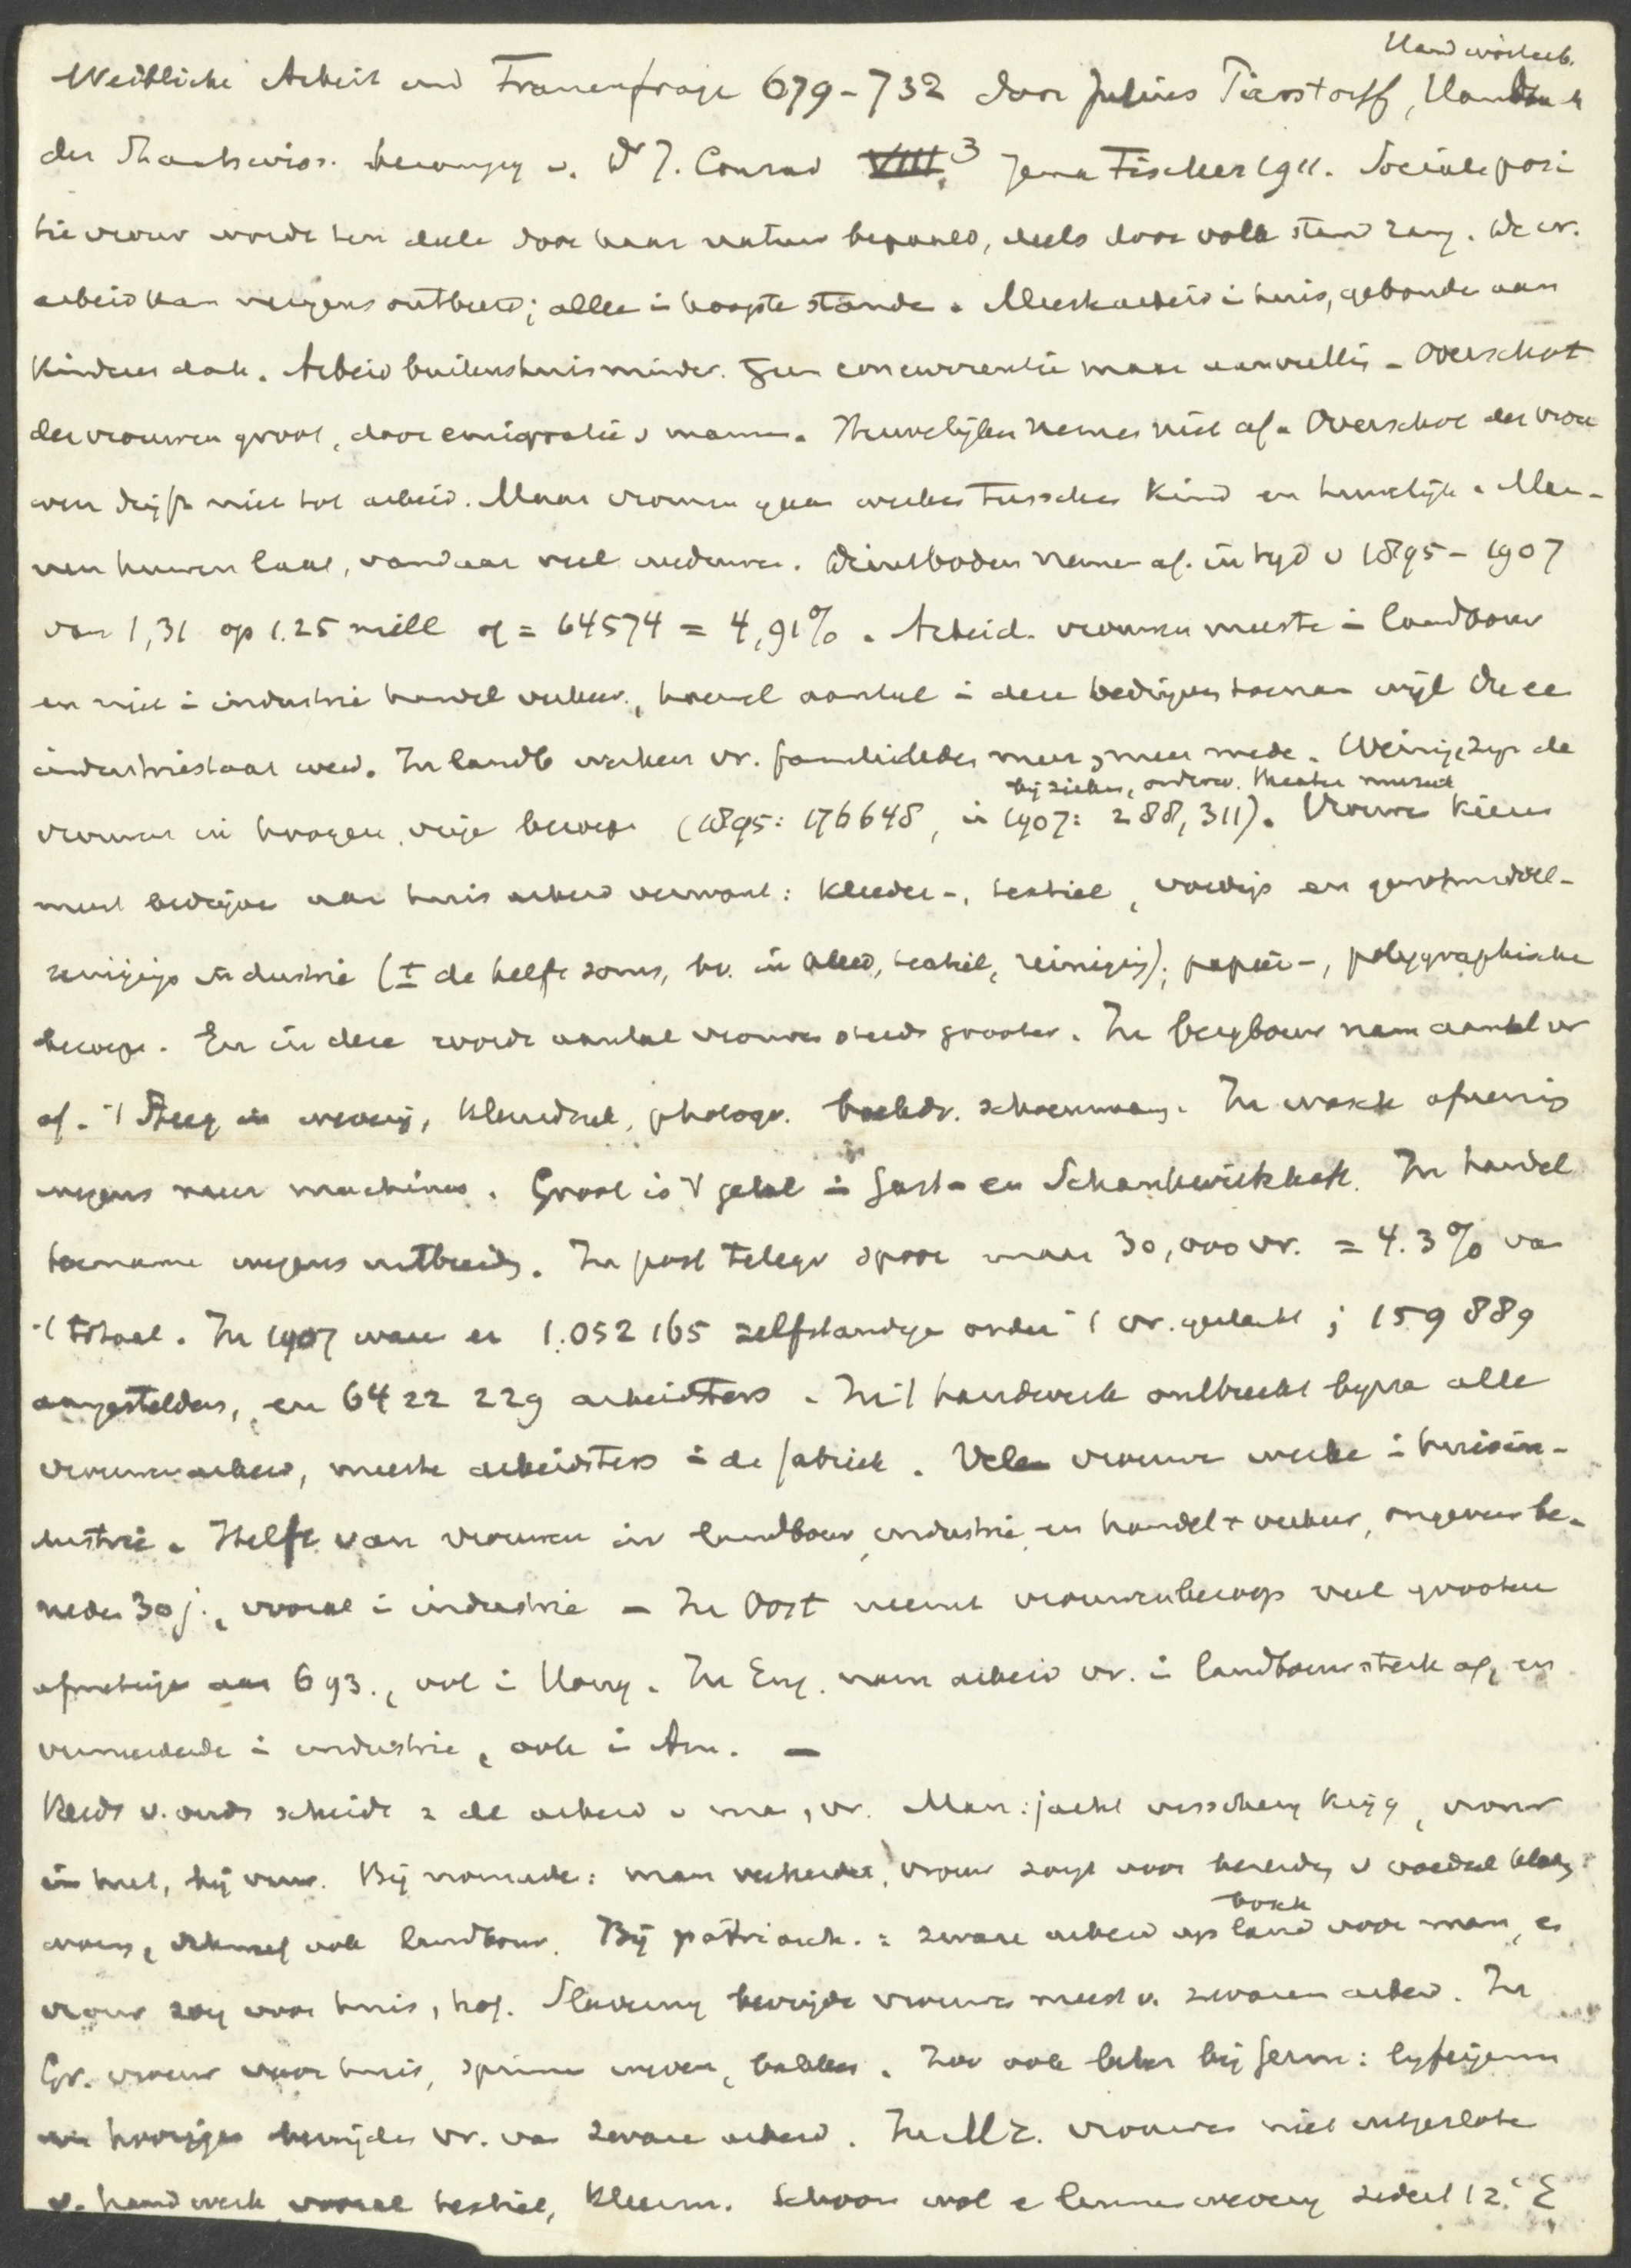 Handwörterb.
Weibliche Arbeit und Frauenfrage 679-732 door Julius Pierstorff, Handbuch
der Staatswiss. v. Dr J. Conrad VIII.3 Jena Fischer 1911. Sociale posi
tie vrouw wordt ten deele door haar natuur bepaald, deels door volk stand rang. De vr.
arbeid kan nergens ontbeerd; alleen in hoogste standen. Meest arbeid in huis, gebonden aan
Kinderen dak. Arbeid buitenshuis minder. Geen concurrentie maar aanvulling - Overschot
der vrouwen groot, door emigratie v mannen. Huwelijken nemen niet af. Overschot der vrou
wen drijft niet tot arbeid. Maar vrouwen gaan werken tusschen Kind en huwelijk. Man-
nen huwen laat, vandaar veel weduwen. Dienstboden nemen af. in tijd v 1895-1907
van 1,31 op 1.25 mill of = 64574 = 4,91%. Arbeid. vrouwen meeste in landbouw
en niet in industrie handel verkeer, hoewel aantal in deze bedrijven toenam wijl De ee
industriestaat werd. In landb werken vr. familieleden meer en meer mede. Weinig zijn de
bij zieken, onderw. theater muziek
vrouwen in hoogere, vrije beroepen (1895: 176648, in 1907: 288,311). Vrouwen kiezen
meest bedrijven aan huisarbeid verwant: Kleeder-, textiel, voedings en genotmiddel-
reinigings industrie (± de helft soms, bv. in kleed, textiel, reiniging); papier-, polygraphische
beroepen. En in deze wordt aantal vrouwen steeds grooter. In bergbouw nam aantal vr
af. 't Steeg in weverij, photogr. boekdr. schoenmak. In wasch afneming
wegens meer machines. Groot is 't getal in Gast- en Schankwirthsch. In handel
toename wegens uitbreidg. In post telegr spoor maar 30,000 vr. = 4.3% van
't totaal. In 1907 waren er 1.052165 zelfstandigen onder 't vr. geslacht; 159889
aangestelden, en 6422229 arbeidsters. In 't handwerk ontbreekt bijna alle
vrouwenarbeid, meeste arbeidsters in de fabriek. Vele vrouwen werken in huisin-
dustrie. Helft van vrouwen in landbouw, industrie en handel + verkeer, ongeveer be-
neden 30 j., vooral in industrie - In Oost neemt vrouwenberoep veel grootere
afmetingen aan 693., ook in Hong. In Eng. nam arbeid vr. in landbouw sterk af, en
vermeerderde in industrie, ook in Am. -
Reeds v. ouds scheidt z de arbeid v man, vr. Man: jacht visscherij krijg, vrouw
in hut, bij vuur. Bij nomaden: man veeherder, vrouw zorgt voor bereidg v voedsel kleeg
bosch
wong, ook landbouw. Bij patriarch.: zware arbeid op land voor man, en
vrouw zorg voor huis, hof. Slavernij bevrijdde vrouwen meest v. zwaren arbeid. In
Gr. vrouw voor huis, spinnen weven, bakken. Zoo ook later bij Germ: lijfeigenen
en hoorigen bevrijden vr. van zware arbeid. In M.E. vrouwen niet uitgesloten
v. handwerk vooral textiel, Kleerm. Schoon wol en linnenweverij sedert 12e E